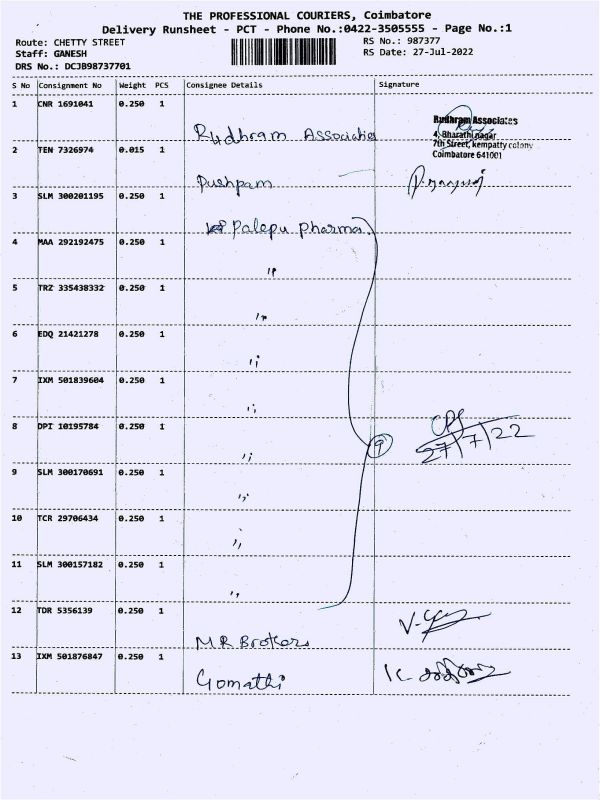 THE PROFESSIONAL COURIERS, Coimbatore
Delivery Runsheet - PCT - Phone No.:0422-3505555 - Page No.:1
Route: CHETTY STREET RS No.: 987377
Staff: GANESH RS Date: 27-Jul-2022
DRS No.: DCJB98737701
S No Consignment No Weight PCS Consignee Details Signature
1 CNR 1691041 0.250 1
Rudhram Associates
Rudhram Associates
4, Bharathi nagar
7th Street, kempatty colony
Coimbatore 641001
2 TEN 7326974 0.015 1
Pushpam
3 SLM 300201195 0.250 1
Palepu Pharma
4 MAA 292192475 0.250 1
"
5 TRZ 335438332 0.250 1
"
6 EDQ 21421278 0.250 1
"
7 IXM 501839604 0.250 1
"
8 DPT 10195784 0.250 1
" 9 27/7/22
9 SLM 300170691 0.250 1
"
10 TCR 29706434 0.250 1
"
11 SLM 300157182 0.250 1
"
12 TDR 5356139 0.250 1
MR Brokers
13 IXM 501876847 0.250 1
Gomathi